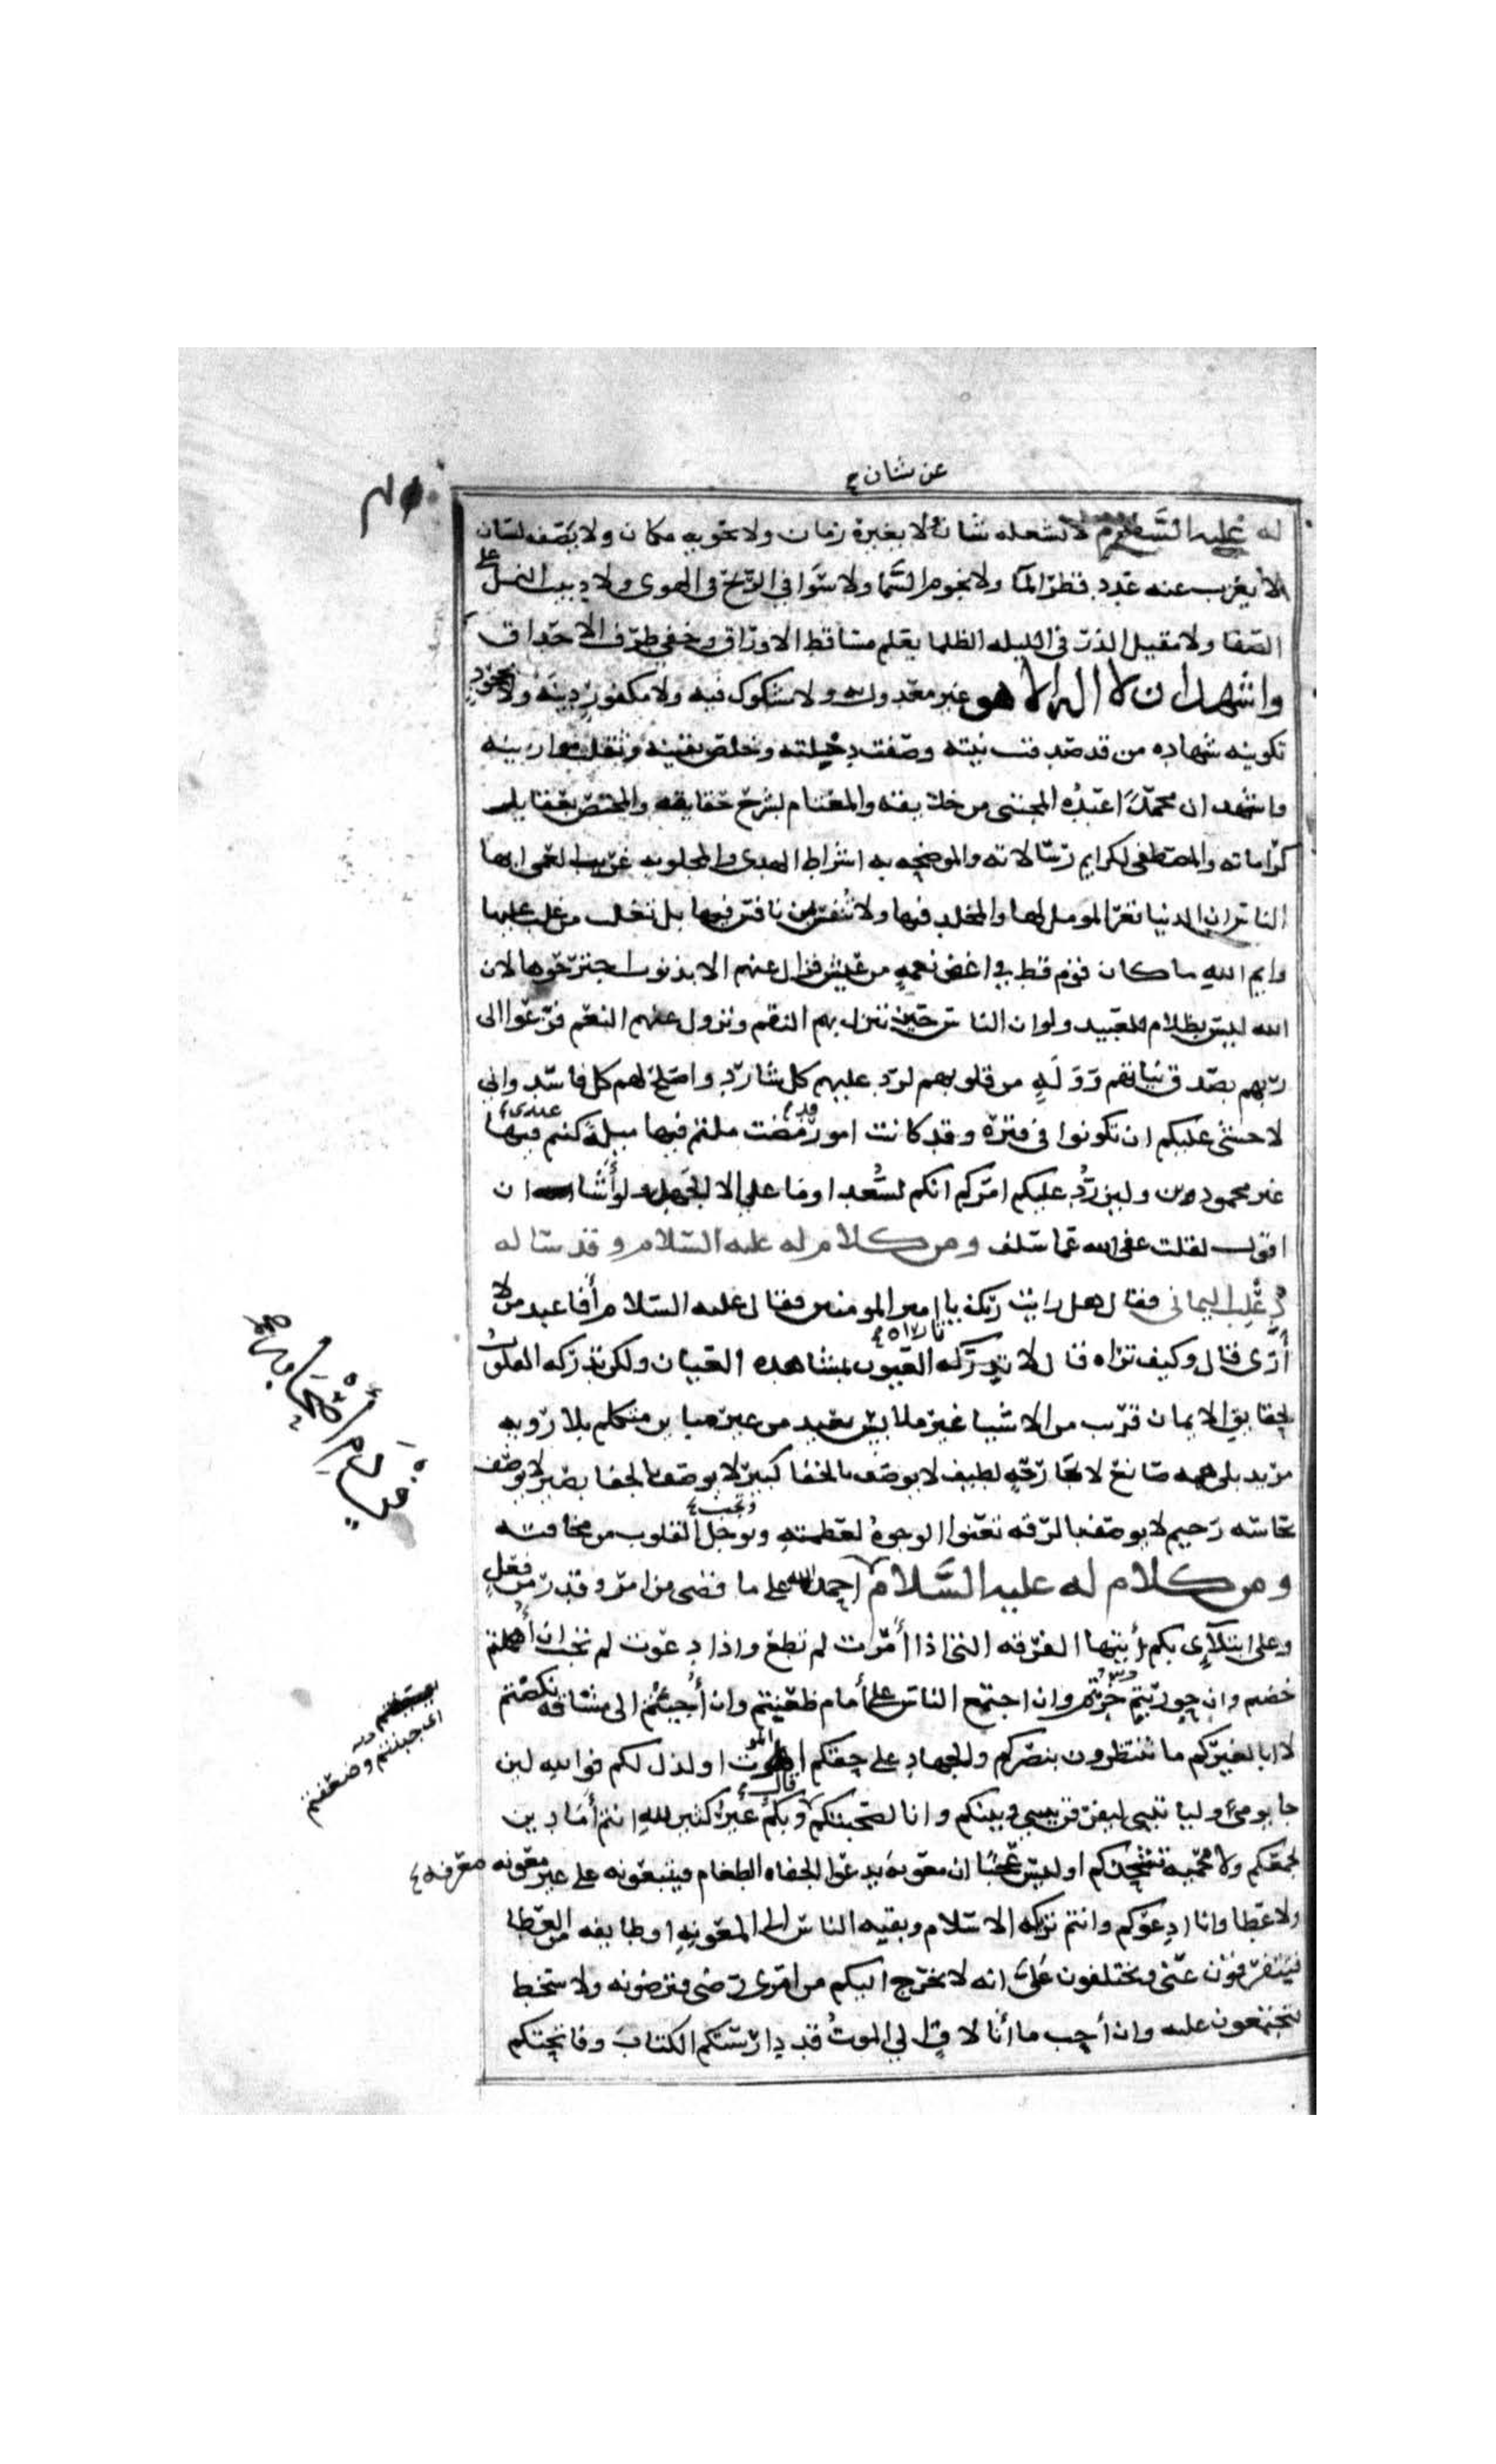 عن شان
له عليه السلام لا يشغله شان لا يغيره زمان ولا يحويه مكان ولا يصفه لسان
لا يعزب عنه عدد قطر الما ولا نجوم السما ولا سوافي الريح في الهوى ولا دبيب النمل على
الصفا ولا مقيل الذر في الليله الظلما يعلم مساقط الاوراق وخفي طرف الاحداق
واشهد ان لا اله الا هو غير معدول به ولا مشكوك فيه ولا مكفور دينه ولا مجحود
تكوينه شهاده من قد صدقت نيته وصفت دخيلته وخلص يقينه وثقلت موازينه
واشهد ان محمدا عبده المجتبى من خلايقه والمعتام لشرح حقايقه والمختص بعقايل
كراماته والمصطفى لكرايم رسالاته والموضحه به اشراط الهدى والمجلو به غربيب العمى ايها
الناس ان الدنيا تغر المومل لها والمخلد فيها ولا تنفس بمن نافس فيها بل تغلب من غلب عليها
وايم الله ما كان قوم قط في غض نعمه من عيش فزال عنهم الا بذنوب اجترحوها لان
الله ليس بظلام للعبيد ولو ان الناس حين تنزل بهم النقم وتزول عنهم النعم فزعوا الى
ربهم بصدق نياتهم ووله من قلوبهم لرد عليهم كل شارد واصلح لهم كل فاسد واني
لاخشى عليكم ان تكونوا في فتره وقد كانت امور قد مضت ملتم فيها ميله كنتم فيها عندي
غير محمودين ولين رد عليكم امركم انكم لسعدا وما علي الا الجهد ولو اشا ان
اقول لقلت عفى الله عما سلف ومن كلام له عليه السلام وقد ساله
ذعلب اليماني فقال هل رايت ربك يا امير المومنين فقال عليه السلام أفاعبد من لا
أرى قال وكيف تراه قال لا تدركه العيون بمشاهده العيان ولكن تدركه القلوب
بحقايق الايمان قرب من الاشيا غير ملابس بعيد من غير مباين متكلم بلا رويه
مريد بلا همه صانع لا بجارحه لطيف لا يوصف بالخفا كبير لا يوصف بالجفا بصير لا يوصف
بحاسه رحيم لا يوصف بالرقه تعنوا الوجوه لعظمته وتوجل القلوب من مخافته
وتجب
ومن كلام له عليه السلام احمد الله على ما قضى من امر وقدر من فعل
وعلى ابتلآي بكم أيتها الفرقه التي اذا أمرت لم تطع واذا دعوت لم تجب ان أهملتم
خضتم وان حوربتم خرتم وان اجتمع الناس على أمام طعنتم وان أجئتم الى مشاقه نكصتم
لا ابا لغيركم ما تنتظرون بنصركم والجهاد على حقكم الموت او الذل لكم فوالله لين
جا يومي وليا تيني ليفرقن بيني وبينكم وانا لصحبتكم قال وبكم غير كثير لله انتم أما دين
يجمعكم ولا محميه تشحذكم اوليس عجبا ان معويه يدعوا الجفاه الطغام فيتبعونه على غير معونه
معرفه
ولا عطا وانا ادعوكم وانتم تريكه الاسلام وبقيه الناس الى المعونه او طايفه من العطا
فتتفرقون عني وتختلفون علي انه لا يخرج اليكم من امري رضى فترضونه ولا سخط
فتجتمعون عليه وان أحب ما أنا لاق الي الموت قد دارستكم الكتاب وفاتحتكم
اى جبنتم وضعفتم